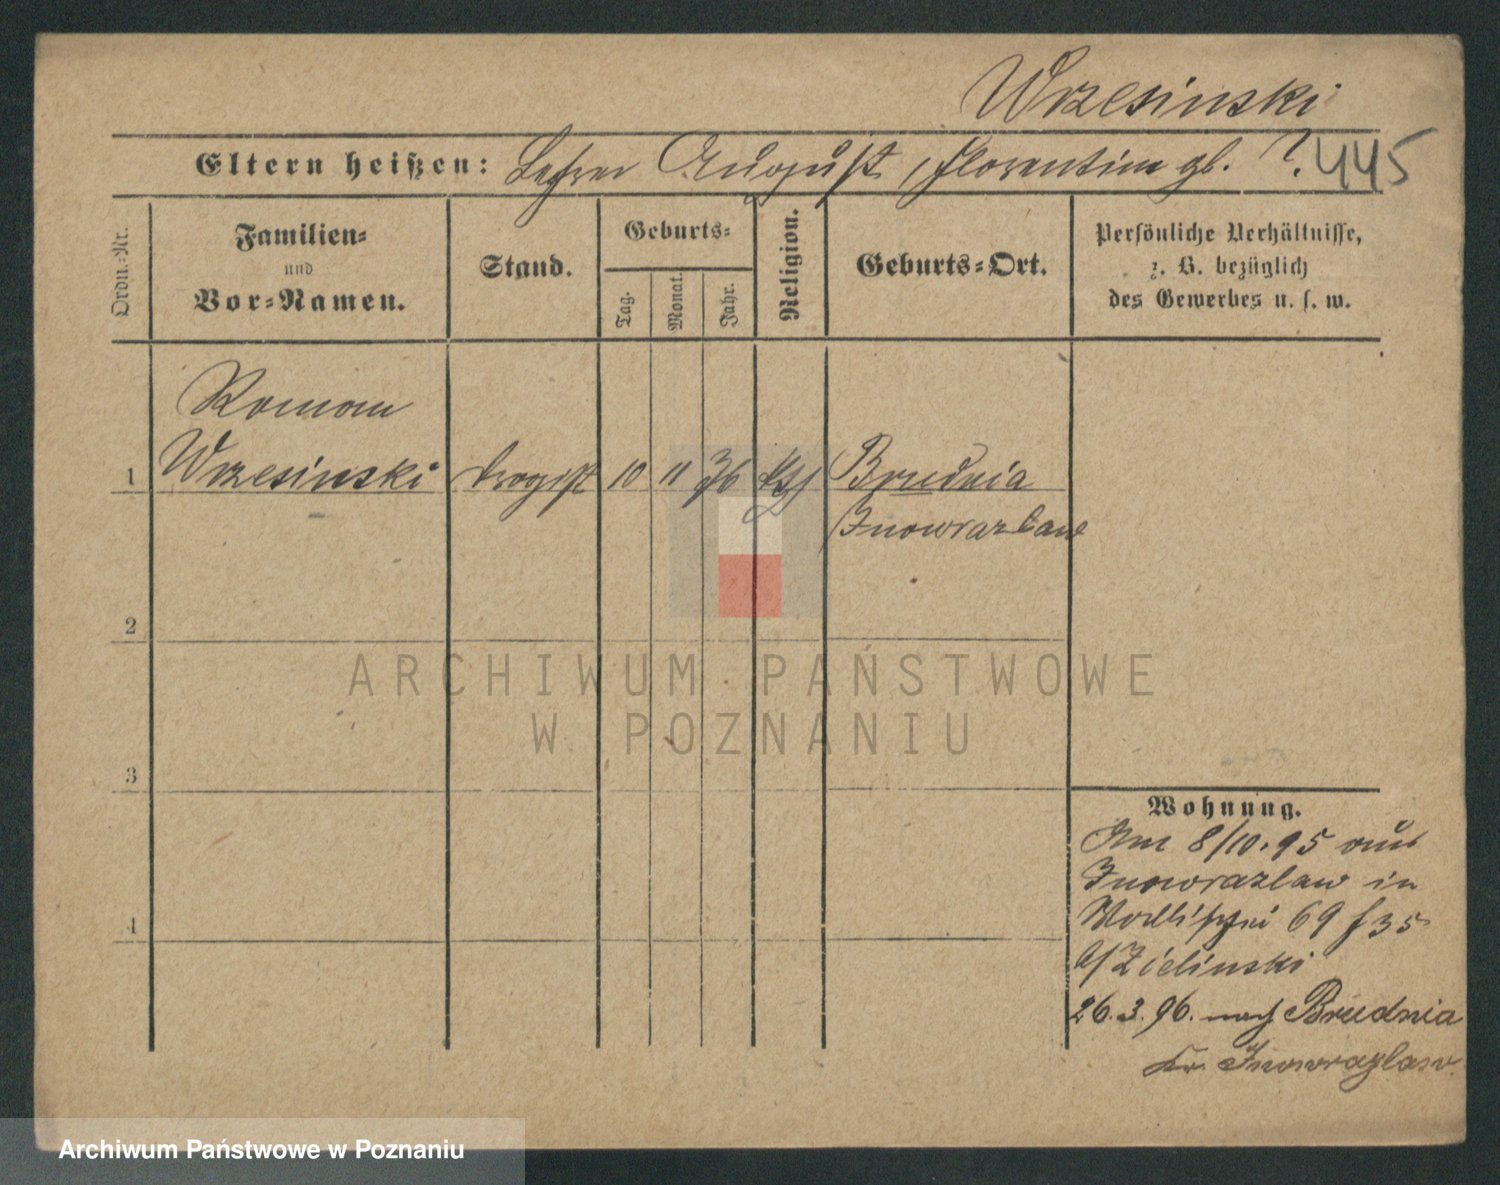 Wrzesinski
Eltern heißen: Lehrer August, Florentine gb. ?. 445
Ordn.-Nr.
Familien-
und
Vor-Namen.
Stand.
Geburts-
Tag.
Monat.
Jahr.
Religion.
Geburts-Ort.
Persönliche Verhältnisse,
z. B. bezüglich
des Gewerbes u. s. w.
Roman
1 Wrzesinski Drogist 10 11 76 kth Brudnia
Inowrazlaw
2
3
4
Wohnung.
Am 8/10.95 aus
Inowrazlaw in
69 35
b/Zielinski
26.3.96. nach Brudnia
Kr. Inowrazlaw
ARCHIWUM PAŃSTWOWE
W POZNANIU
Archiwum Państwowe w Poznaniu